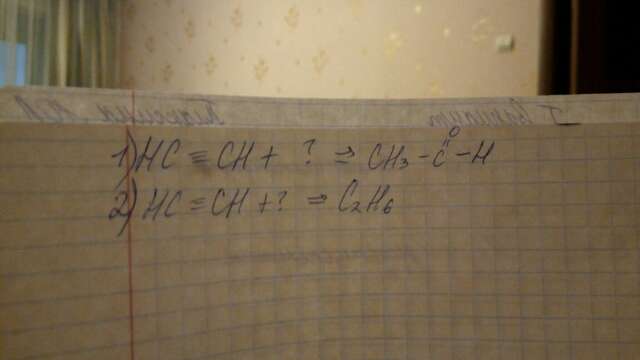 O
1) HC ≡ CH + ? ⇒ CH3 - C - H
2) HC ≡ CH + ? ⇒ C2H6